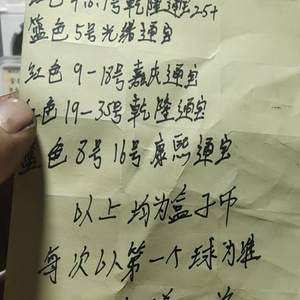 红色 9 18号 乾隆通宝 25+
篮色 5号光绪通宝
红色 9-18号嘉庆通宝
红色 19-35号乾隆通宝
篮色 8号16号康熙通宝
以上均为盒子币
每次以第一个球为准